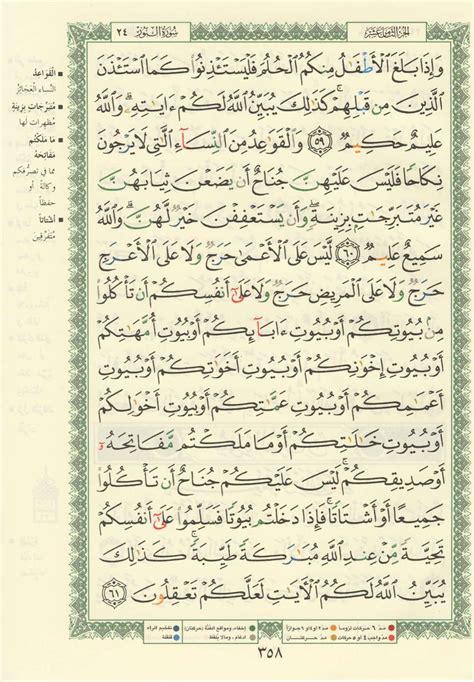 الجزء الثامن عشر
سورة النور ٢٤
وَإِذَا بَلَغَ ٱلْأَطْفَٰلُ مِنكُمُ ٱلْحُلُمَ فَلْيَسْتَـْٔذِنُوا۟ كَمَا ٱسْتَـْٔذَنَ
ٱلَّذِينَ مِن قَبْلِهِمْ ۚ كَذَٰلِكَ يُبَيِّنُ ٱللَّهُ لَكُمْ ءَايَٰتِهِۦ ۗ وَٱللَّهُ
عَلِيمٌ حَكِيمٌ ٥٩ وَٱلْقَوَٰعِدُ مِنَ ٱلنِّسَآءِ ٱلَّٰتِى لَا يَرْجُونَ
نِكَاحًا فَلَيْسَ عَلَيْهِنَّ جُنَاحٌ أَن يَضَعْنَ ثِيَابَهُنَّ
غَيْرَ مُتَبَرِّجَٰتٍۭ بِزِينَةٍ ۖ وَأَن يَسْتَعْفِفْنَ خَيْرٌ لَّهُنَّ ۗ وَٱللَّهُ
سَمِيعٌ عَلِيمٌ ٦٠ لَّيْسَ عَلَى ٱلْأَعْمَىٰ حَرَجٌ وَلَا عَلَى ٱلْأَعْرَجِ
حَرَجٌ وَلَا عَلَى ٱلْمَرِيضِ حَرَجٌ وَلَا عَلَىٰٓ أَنفُسِكُمْ أَن تَأْكُلُوا۟
مِنۢ بُيُوتِكُمْ أَوْ بُيُوتِ ءَابَآئِكُمْ أَوْ بُيُوتِ أُمَّهَٰتِكُمْ
أَوْ بُيُوتِ إِخْوَٰنِكُمْ أَوْ بُيُوتِ أَخَوَٰتِكُمْ أَوْ بُيُوتِ
أَعْمَٰمِكُمْ أَوْ بُيُوتِ عَمَّٰتِكُمْ أَوْ بُيُوتِ أَخْوَٰلِكُمْ
أَوْ بُيُوتِ خَٰلَٰتِكُمْ أَوْ مَا مَلَكْتُم مَّفَاتِحَهُۥٓ
أَوْ صَدِيقِكُمْ ۚ لَيْسَ عَلَيْكُمْ جُنَاحٌ أَن تَأْكُلُوا۟
جَمِيعًا أَوْ أَشْتَاتًا ۚ فَإِذَا دَخَلْتُم بُيُوتًا فَسَلِّمُوا۟ عَلَىٰٓ أَنفُسِكُمْ
تَحِيَّةً مِّنْ عِندِ ٱللَّهِ مُبَٰرَكَةً طَيِّبَةً ۚ كَذَٰلِكَ
يُبَيِّنُ ٱللَّهُ لَكُمُ ٱلْـَٔايَٰتِ لَعَلَّكُمْ تَعْقِلُونَ ٦١
القَوَاعِدُ
النِّساء العَجَائِز
مُتَبَرِّجَاتٍ بِزِينَةٍ
مُظهِرات لها
مَا مَلَكْتُم
مَفَاتِحَهُ
مما في تصرُّفكم
وكالةً أو
حفظاً
أَشْتَاتاً
مُتفَرِّقين
مدّ ٦ حركات لزوماً
مدّ ٢ أو ٤ أو ٦ جوازاً
مدّ واجب ٤ أو ٥ حركات
مدّ حركتان
إخفاء، ومواقع الغُنَّة (حركتان)
ادغام، ومالا يُلفظ
تفخيم الراء
قلقلة
٣٥٨